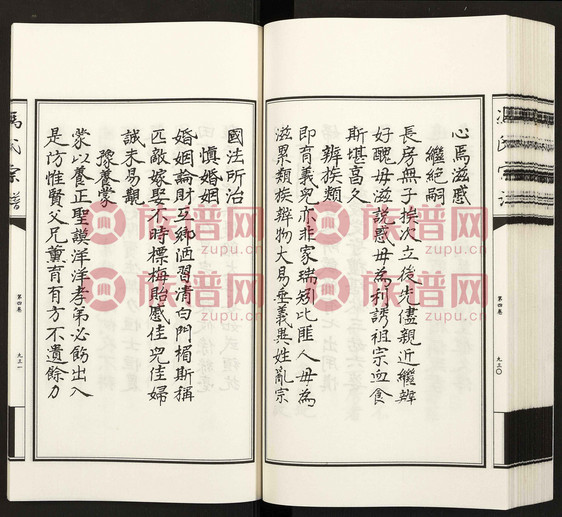 心焉滋惑
繼絕嗣
長房無子挨次立後先儘親近繼辨
好醜毋滋說惑毋為利誘祖宗血食
斯堪高久
辨族類
即育義兒亦非家瑞矧比匪人毋為
滋累類族辨物大易垂義異姓亂宗
國法所治
慎婚姻
婚姻論財互鄉酒習清白門楣斯稱
匹敵嫁娶不時摽梅貽感佳兒佳婦
誠未易觀
豫養蒙
蒙以養正聖謨洋洋孝弟必飭出入
是防惟賢父兄薰育有方不遺餘力
第四卷
九三〇
馮氏宗譜
第四卷
九三一
族譜网
zupu.cn
族譜网
zupu.cn
族譜网
zupu.cn
族譜网
zupu.cn